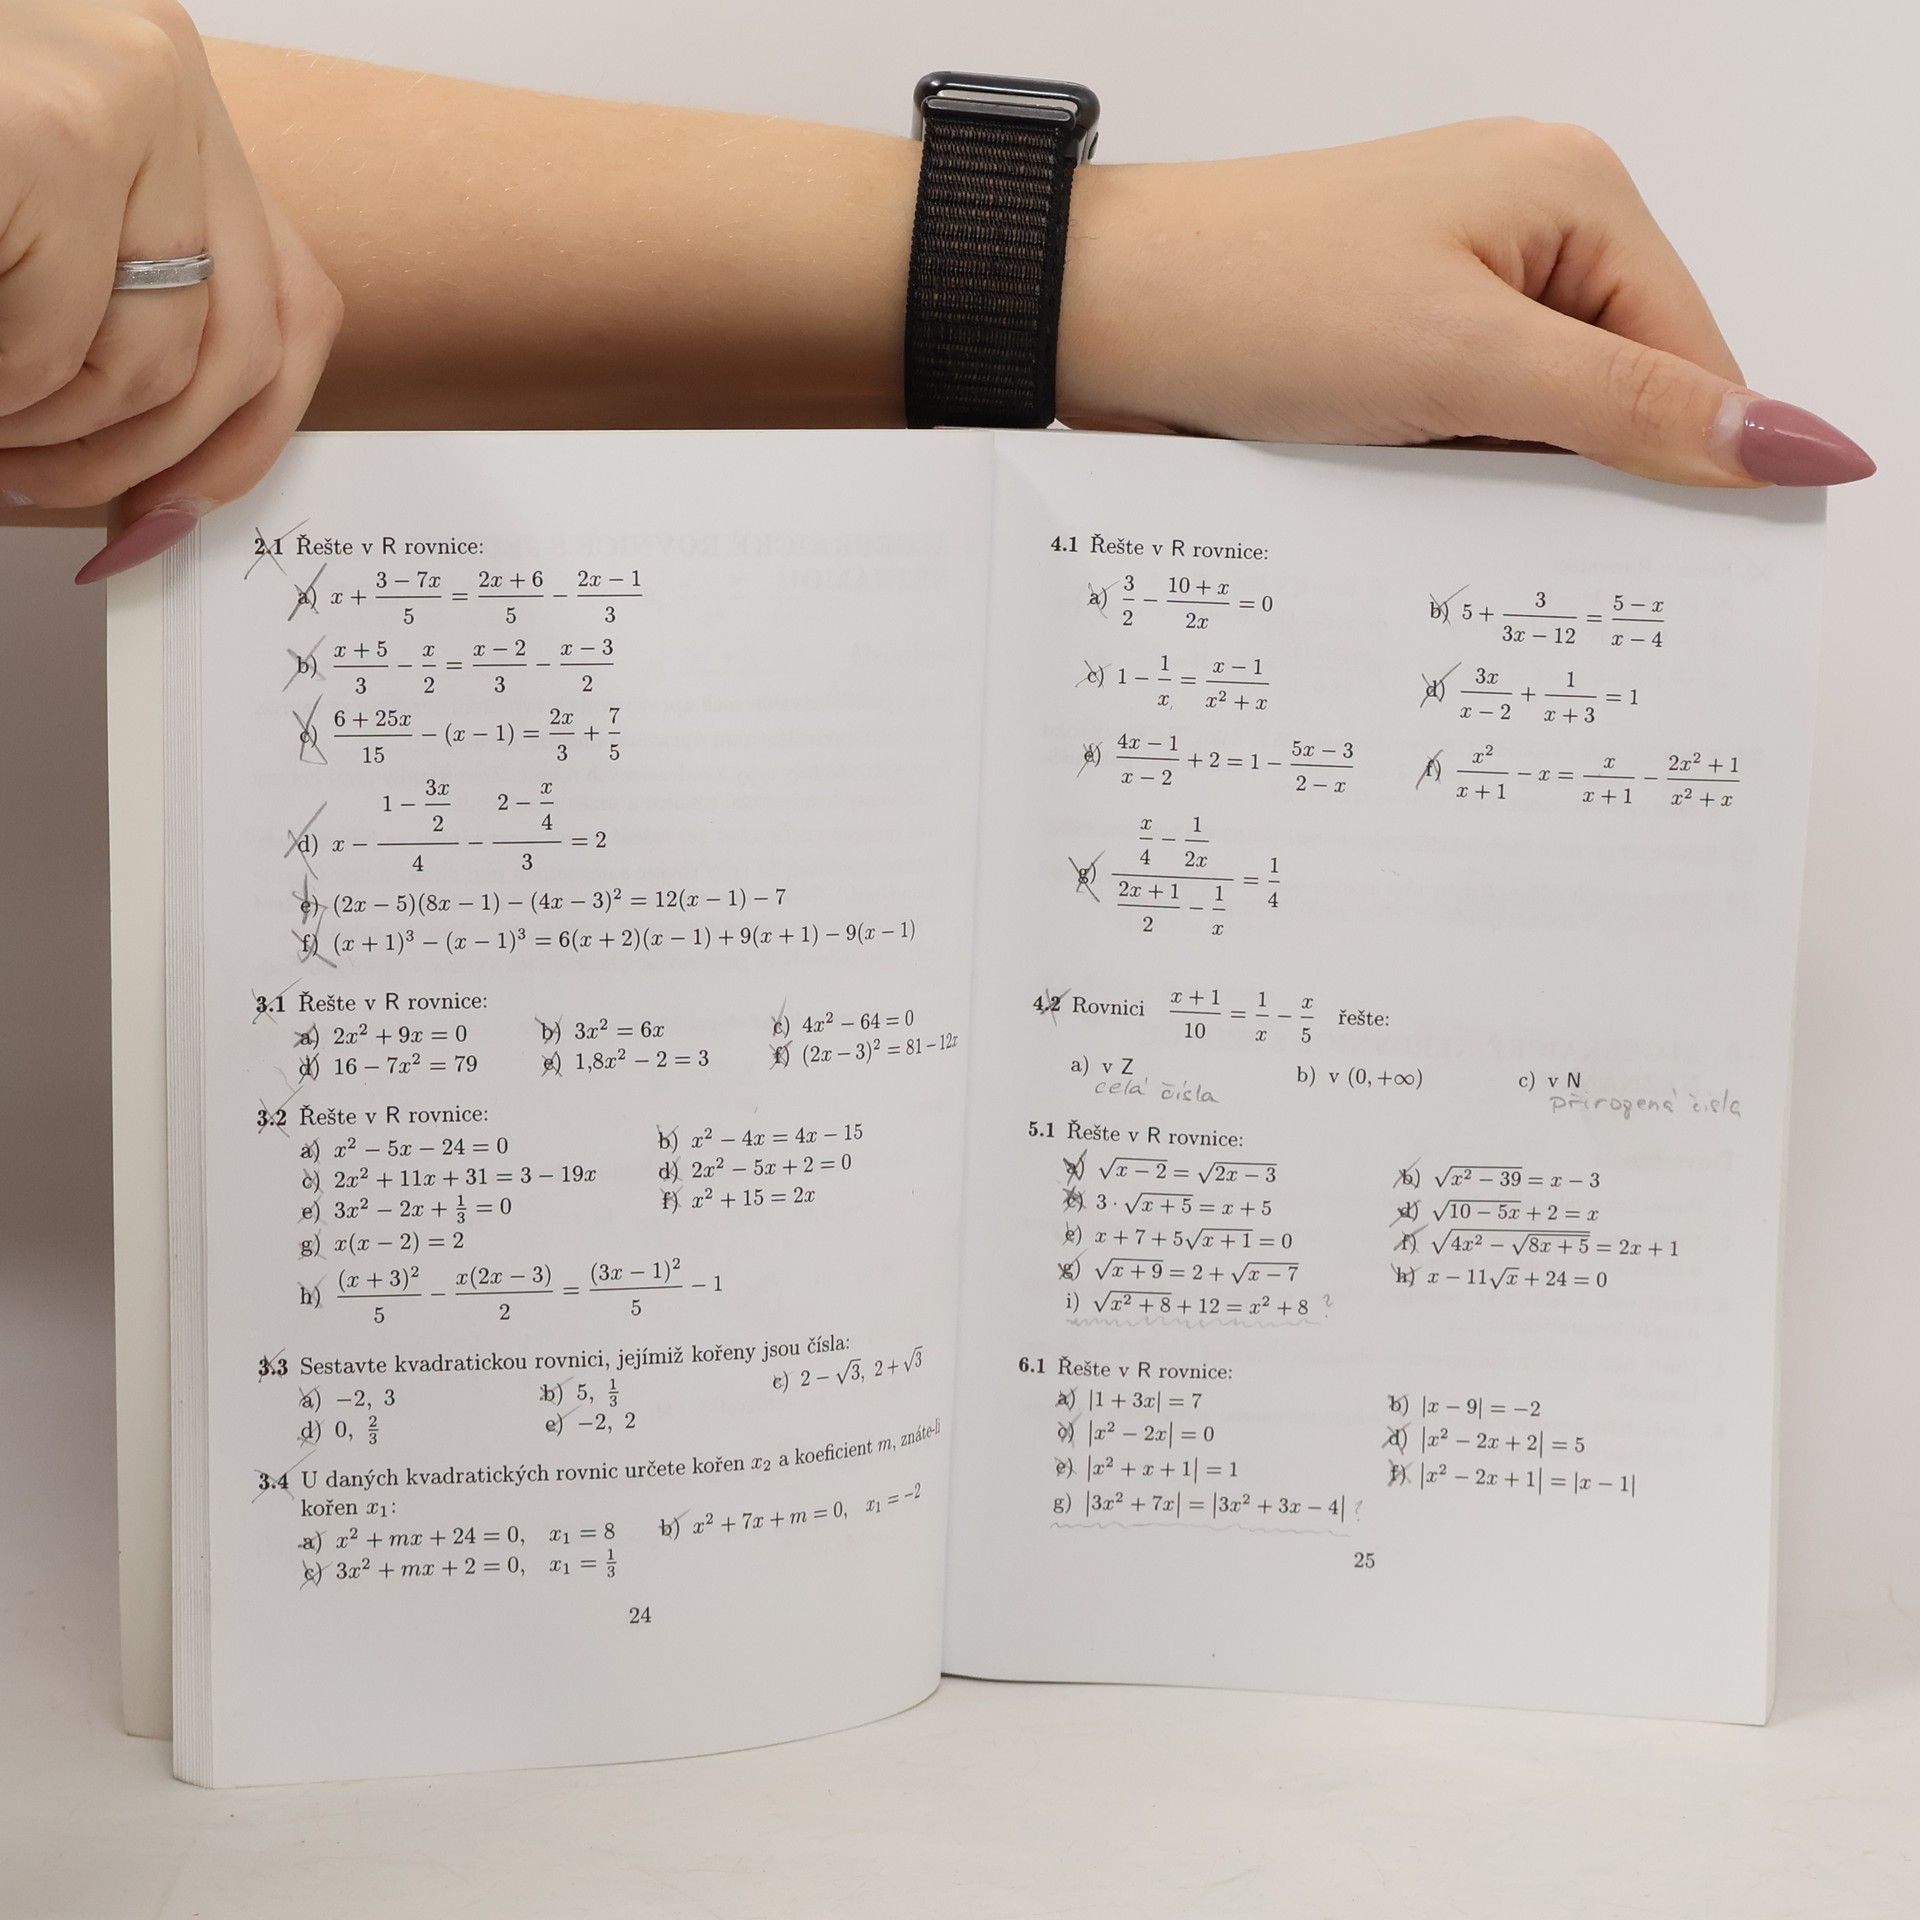 2.1 Řešte v R rovnice:
a) x + (3 − 7x)/5 = (2x + 6)/5 − (2x − 1)/3
b) (x + 5)/3 − x/2 = (x − 2)/3 − (x − 3)/2
c) (6 + 25x)/15 − (x − 1) = 2x/3 + 7/5
d) x − (1 − 3x/2)/4 − (2 − x/4)/3 = 2
e) (2x − 5)(8x − 1) − (4x − 3)² = 12(x − 1) − 7
f) (x + 1)³ − (x − 1)³ = 6(x + 2)(x − 1) + 9(x + 1) − 9(x − 1)
3.1 Řešte v R rovnice:
a) 2x² + 9x = 0 b) 3x² = 6x c) 4x² − 64 = 0
d) 16 − 7x² = 79 e) 1,8x² − 2 = 3 f) (2x − 3)² = 81 − 12x
3.2 Řešte v R rovnice:
a) x² − 5x − 24 = 0 b) x² − 4x = 4x − 15
c) 2x² + 11x + 31 = 3 − 19x d) 2x² − 5x + 2 = 0
e) 3x² − 2x + 1/3 = 0 f) x² + 15 = 2x
g) x(x − 2) = 2
h) (x + 3)²/5 − x(2x − 3)/2 = (3x − 1)²/5 − 1
3.3 Sestavte kvadratickou rovnici, jejímiž kořeny jsou čísla:
a) −2, 3 b) 5, 1/3 c) 2 − √3, 2 + √3
d) 0, 2/3 e) −2, 2
3.4 U daných kvadratických rovnic určete kořen x₂ a koeficient m, znáte-li
kořen x₁:
a) x² + mx + 24 = 0, x₁ = 8 b) x² + 7x + m = 0, x₁ = −2
c) 3x² + mx + 2 = 0, x₁ = 1/3
24
4.1 Řešte v R rovnice:
a) 3/2 − (10 + x)/2x = 0 b) 5 + 3/(3x − 12) = (5 − x)/(x − 4)
c) 1 − 1/x = (x − 1)/(x² + x) d) 3x/(x − 2) + 1/(x + 3) = 1
e) (4x − 1)/(x − 2) + 2 = 1 − (5x − 3)/(2 − x) f) x²/(x + 1) − x = x/(x + 1) − (2x² + 1)/(x² + x)
g) (x/4 − 1/2x)/((2x + 1)/2 − 1/x) = 1/4
4.2 Rovnici (x + 1)/10 = 1/x − x/5 řešte:
a) v Z b) v (0, +∞) c) v N
celá čísla přirozená čísla
5.1 Řešte v R rovnice:
a) √(x − 2) = √(2x − 3) b) √(x² − 39) = x − 3
c) 3 · √(x + 5) = x + 5 d) √(10 − 5x) + 2 = x
e) x + 7 + 5√(x + 1) = 0 f) √(4x² − √(8x + 5)) = 2x + 1
g) √(x + 9) = 2 + √(x − 7) h) x − 11√x + 24 = 0
i) √(x² + 8) + 12 = x² + 8 ?
6.1 Řešte v R rovnice:
a) |1 + 3x| = 7 b) |x − 9| = −2
c) |x² − 2x| = 0 d) |x² − 2x + 2| = 5
e) |x² + x + 1| = 1 f) |x² − 2x + 1| = |x − 1|
g) |3x² + 7x| = |3x² + 3x − 4| ?
25